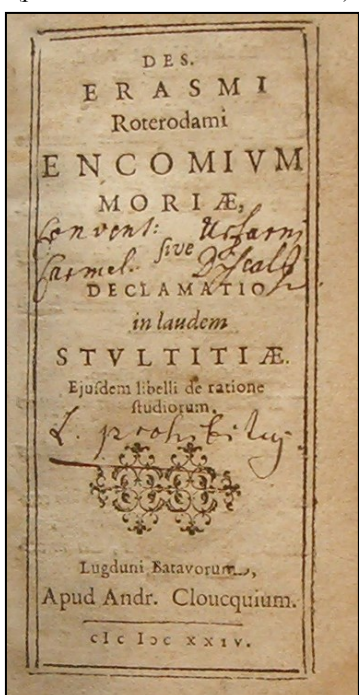 DES.
ERASMI
Roterodami
ENCOMIVM
MORIÆ,
Convent:
sive
Carmel. Discalc
DECLAMATIO
in laudem
STVLTITIÆ.
Ejuſdem libelli de ratione
ſtudiorum.
L. prohibitus
Lugduni Batavorum,
Apud Andr. Cloucquium.
cIↄ Iↄc XXIV.